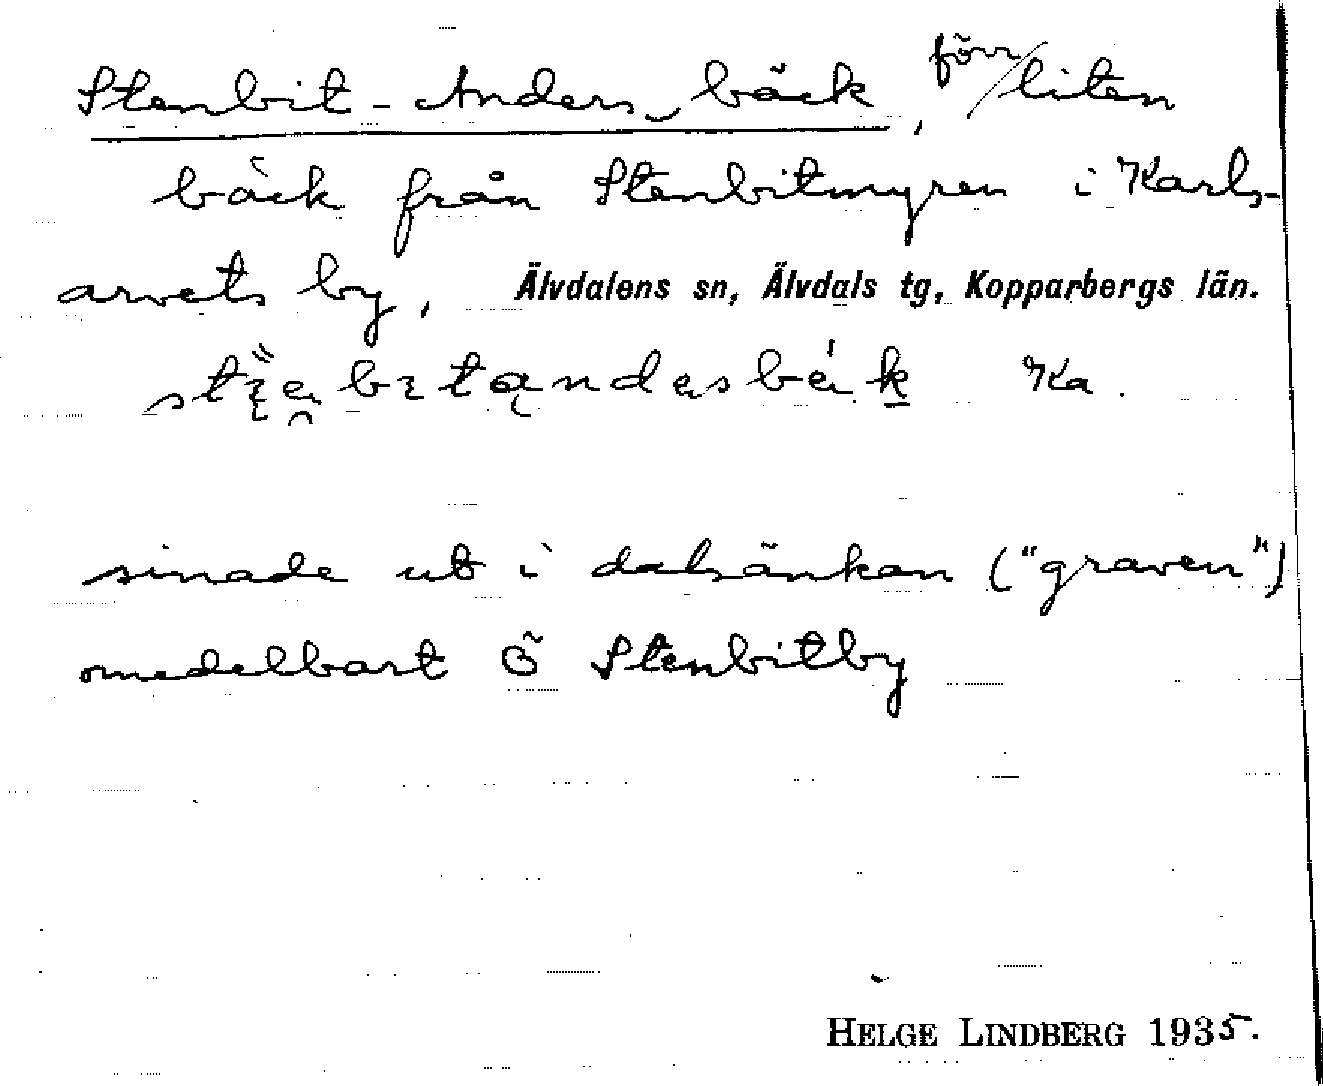 Stenbit-Anders bäck, förr liten
bäck från Stenbitmyren i Karls-
arvets by, Älvdalens sn, Älvdals tg, Kopparbergs län.
Ka.
sinade ut i dalsänkan ("graven")
omedelbart Ö Stenbitby
HELGE LINDBERG 1935.